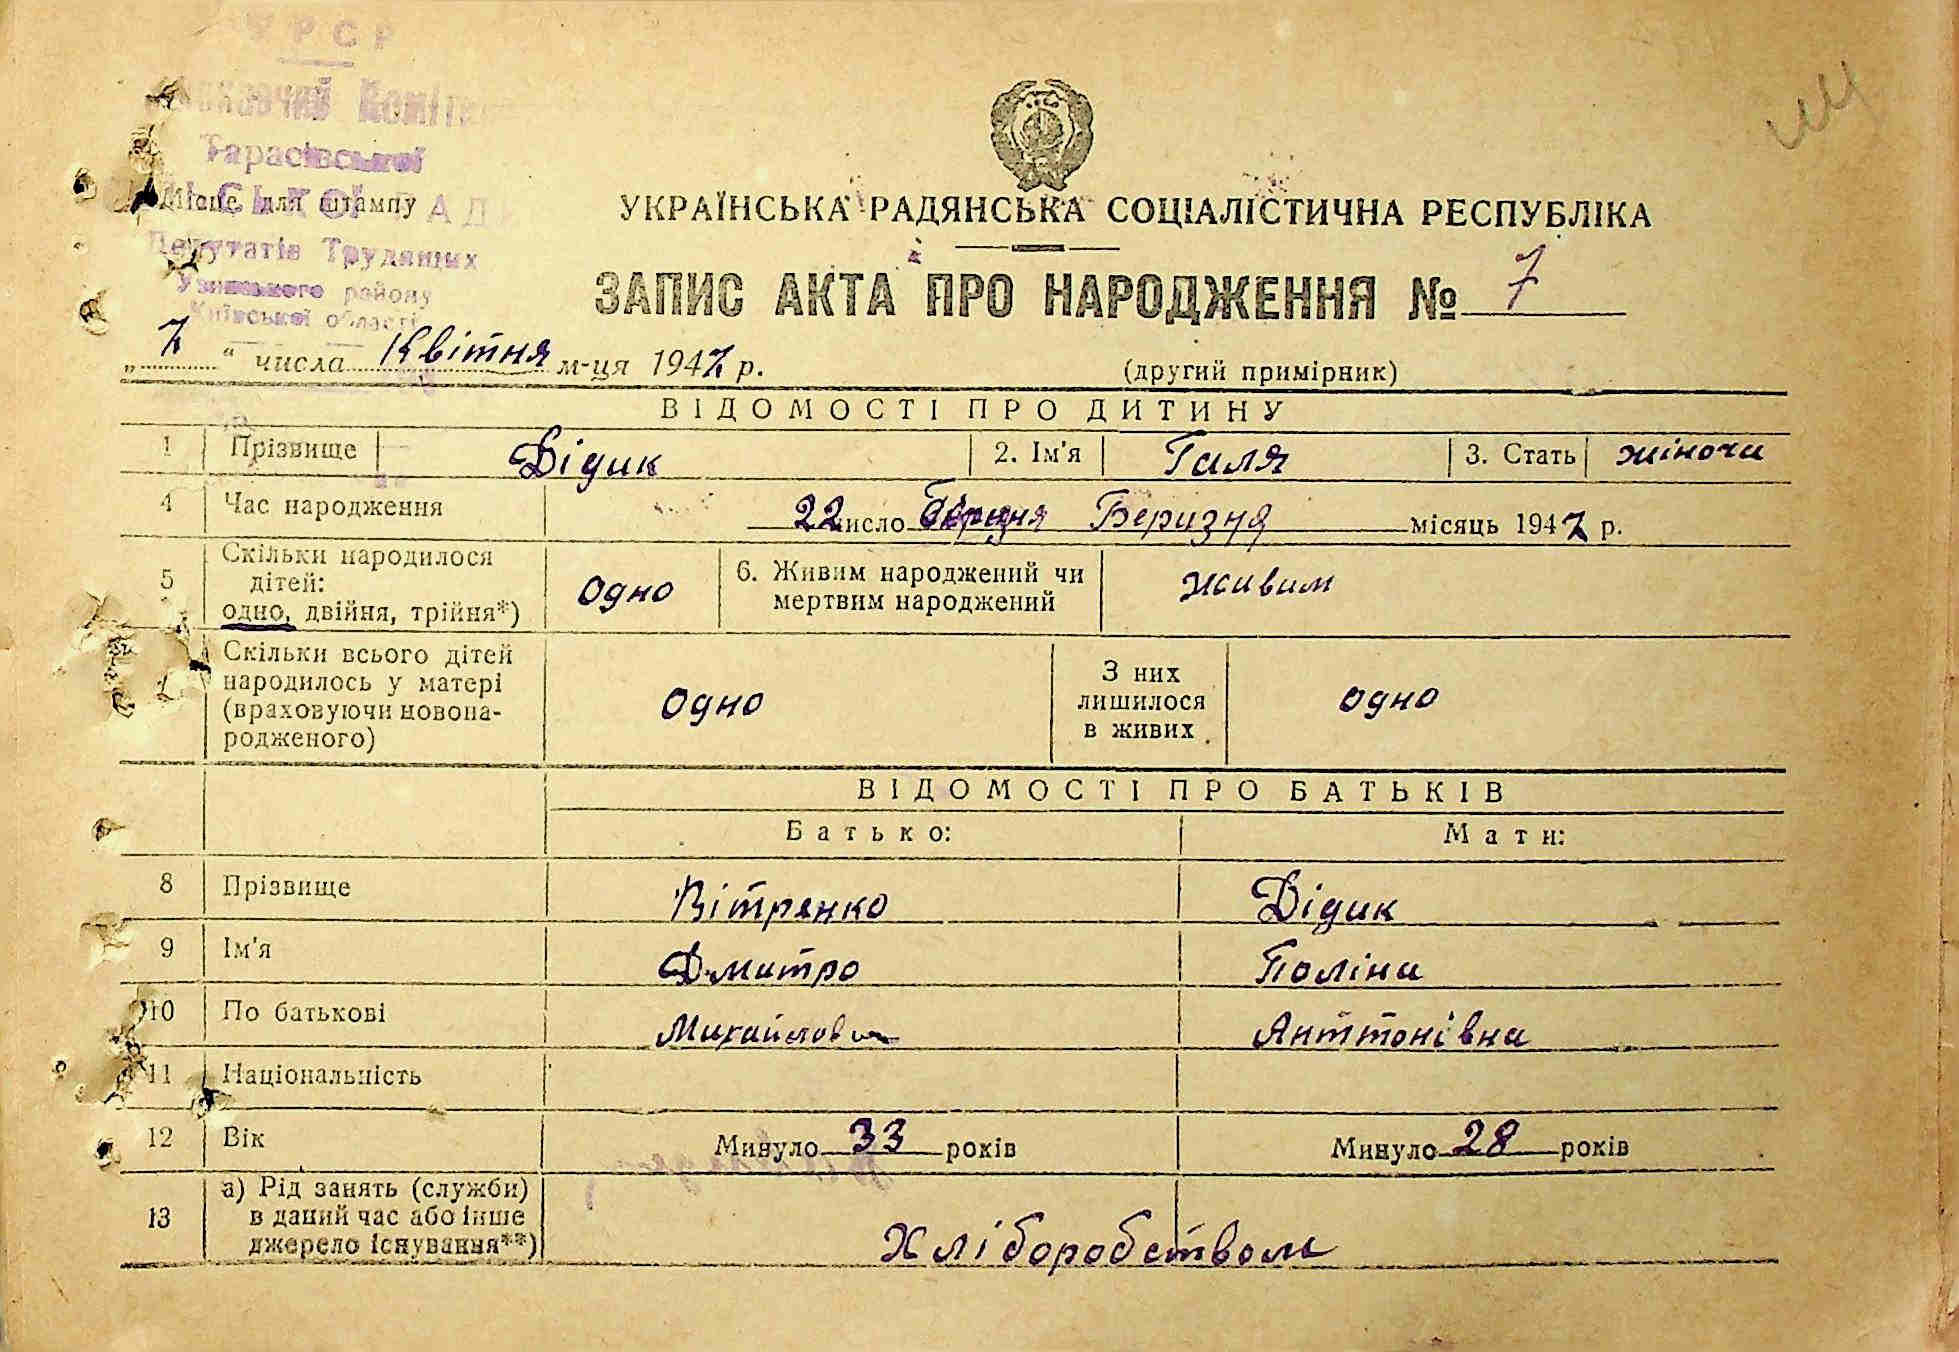 УРСР
Виконавчий Комітет
Тарасівської
СІЛЬКОЇ РАДИ
Місце для штампу
Депутатів Трудящих
Узинського району
Київської області
УКРАЇНСЬКА РАДЯНСЬКА СОЦІАЛІСТИЧНА РЕСПУБЛІКА
ЗАПИС АКТА ПРО НАРОДЖЕННЯ № 7
„ 7 “ числа Квітня м-ця 1947 р.
(другий примірник)
ВІДОМОСТІ ПРО ДИТИНУ
1 Прізвище Дідик 2. Ім'я Галя 3. Стать жіноча
4 Час народження 22 число Березня місяць 1947 р.
5 Скільки народилося
дітей:
одно, двійня, трійня*) одно 6. Живим народжений чи
мертвим народжений живим
Скільки всього дітей
народилось у матері
(враховуючи новона-
родженого) одно З них
лишилося
в живих одно
ВІДОМОСТІ ПРО БАТЬКІВ
Батько: Мати:
8 Прізвище Вітренко Дідик
9 Ім'я Дмитро Поліна
10 По батькові Михайлович Анттонівна
11 Національність
12 Вік Минуло 33 років Минуло 28 років
13 а) Рід занять (служби)
в даний час або інше
джерело існування**) Хліборобством